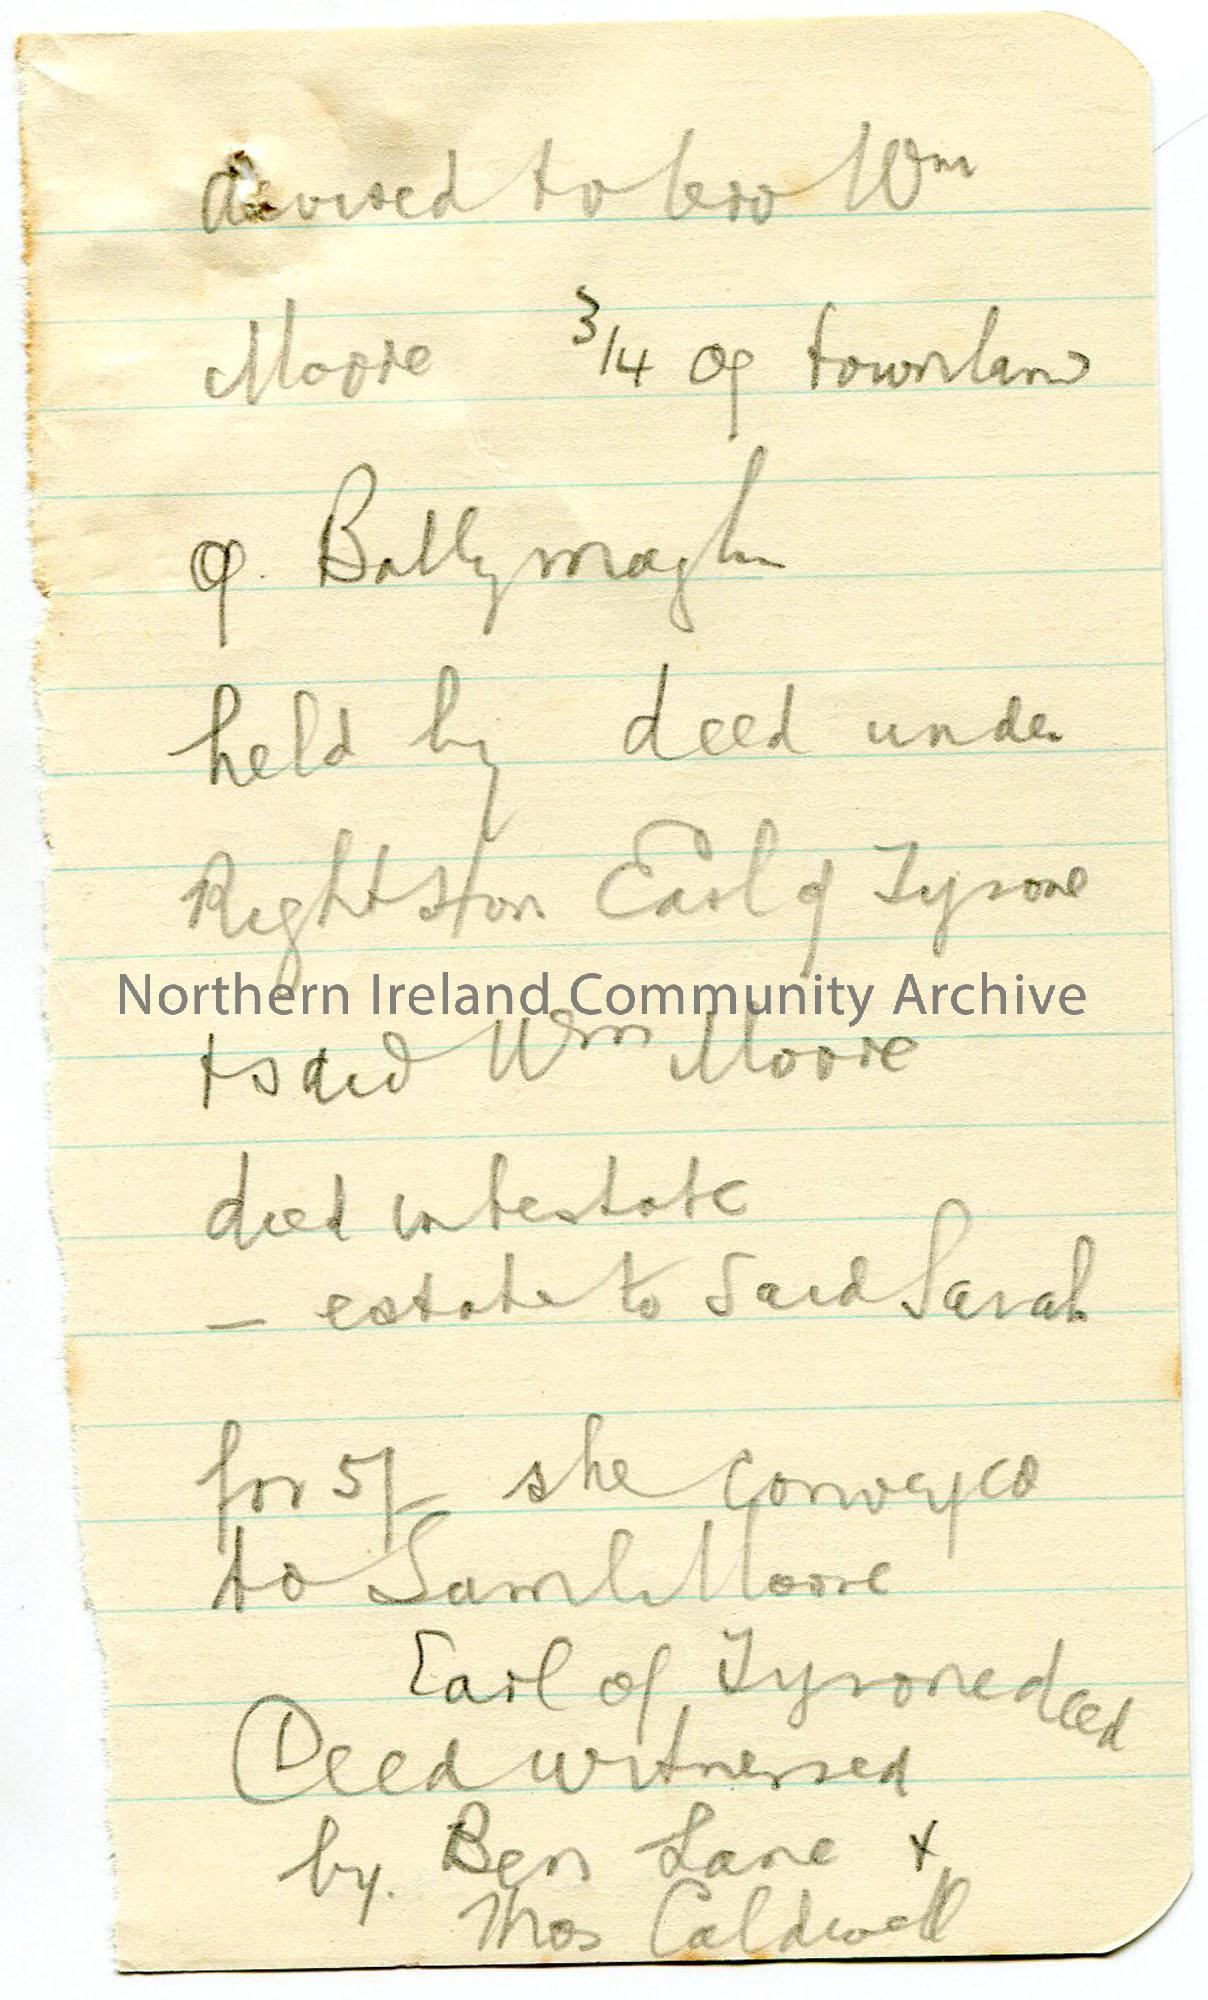 devised to bro Wm
Moore 3/4 of townland
of Ballymagh
held by deed under
Right Hon Earl of Tyrone
Northern Ireland Community Archive
+ said Wm Moore
died intestate
– estate to said Sarah
for 5/- she conveyed
to Saml Moore
Earl of Tyrone deed
Deed witnessed
by. Ben Lane +
Thos Caldwell